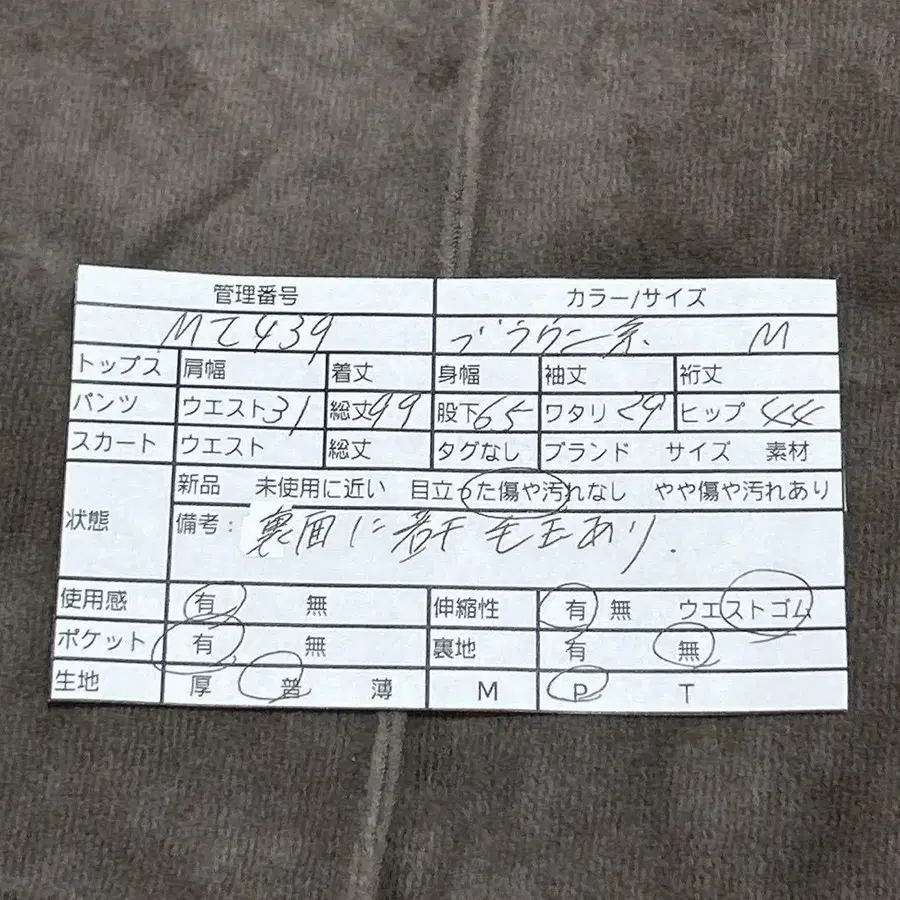 管理番号 カラー/サイズ
MZ439 ブラウン系. M
トップス 肩幅 着丈 身幅 袖丈 裄丈
パンツ ウエスト31 総丈99 股下65 ワタリ29 ヒップ44
スカート ウエスト 総丈 タグなし ブランド サイズ 素材
状態 新品 未使用に近い 目立った傷や汚れなし やや傷や汚れあり
備考: 裏面に若干毛玉あり.
使用感 有 無 伸縮性 有 無 ウエストゴム
ポケット 有 無 裏地 有 無
生地 厚 普 薄 M P T